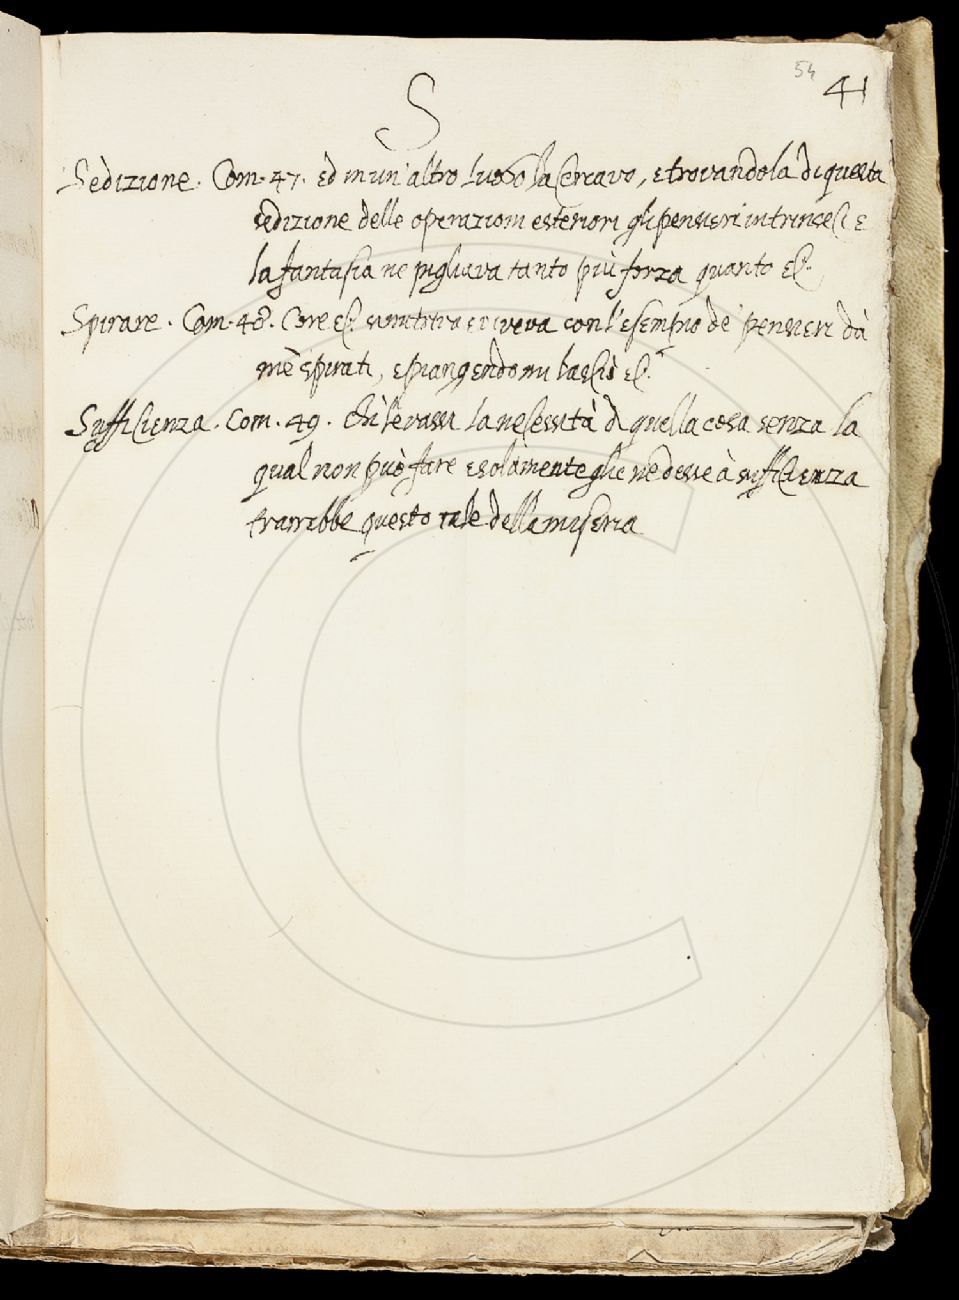 54
41
S
Sedizione. Com. 47. ed in un' altro luogo la cercavo, e trovandola di questa
sedizione delle operazioni esteriori gli pensieri intrinseci e
la fantasia ne pigliava tanto più forza quanto &c.
Spirare. Com. 48. Core &c. scriveva con l'esempio de' pensieri dà
mè spirati, e piangendo mi lasciò &c.
Sufficienza. Com. 49. chi levassi la necessità di quella cosa senza la
qual non può fare e solamente glie ne desse à sufficienza
trarrebbe questo tale della miseria